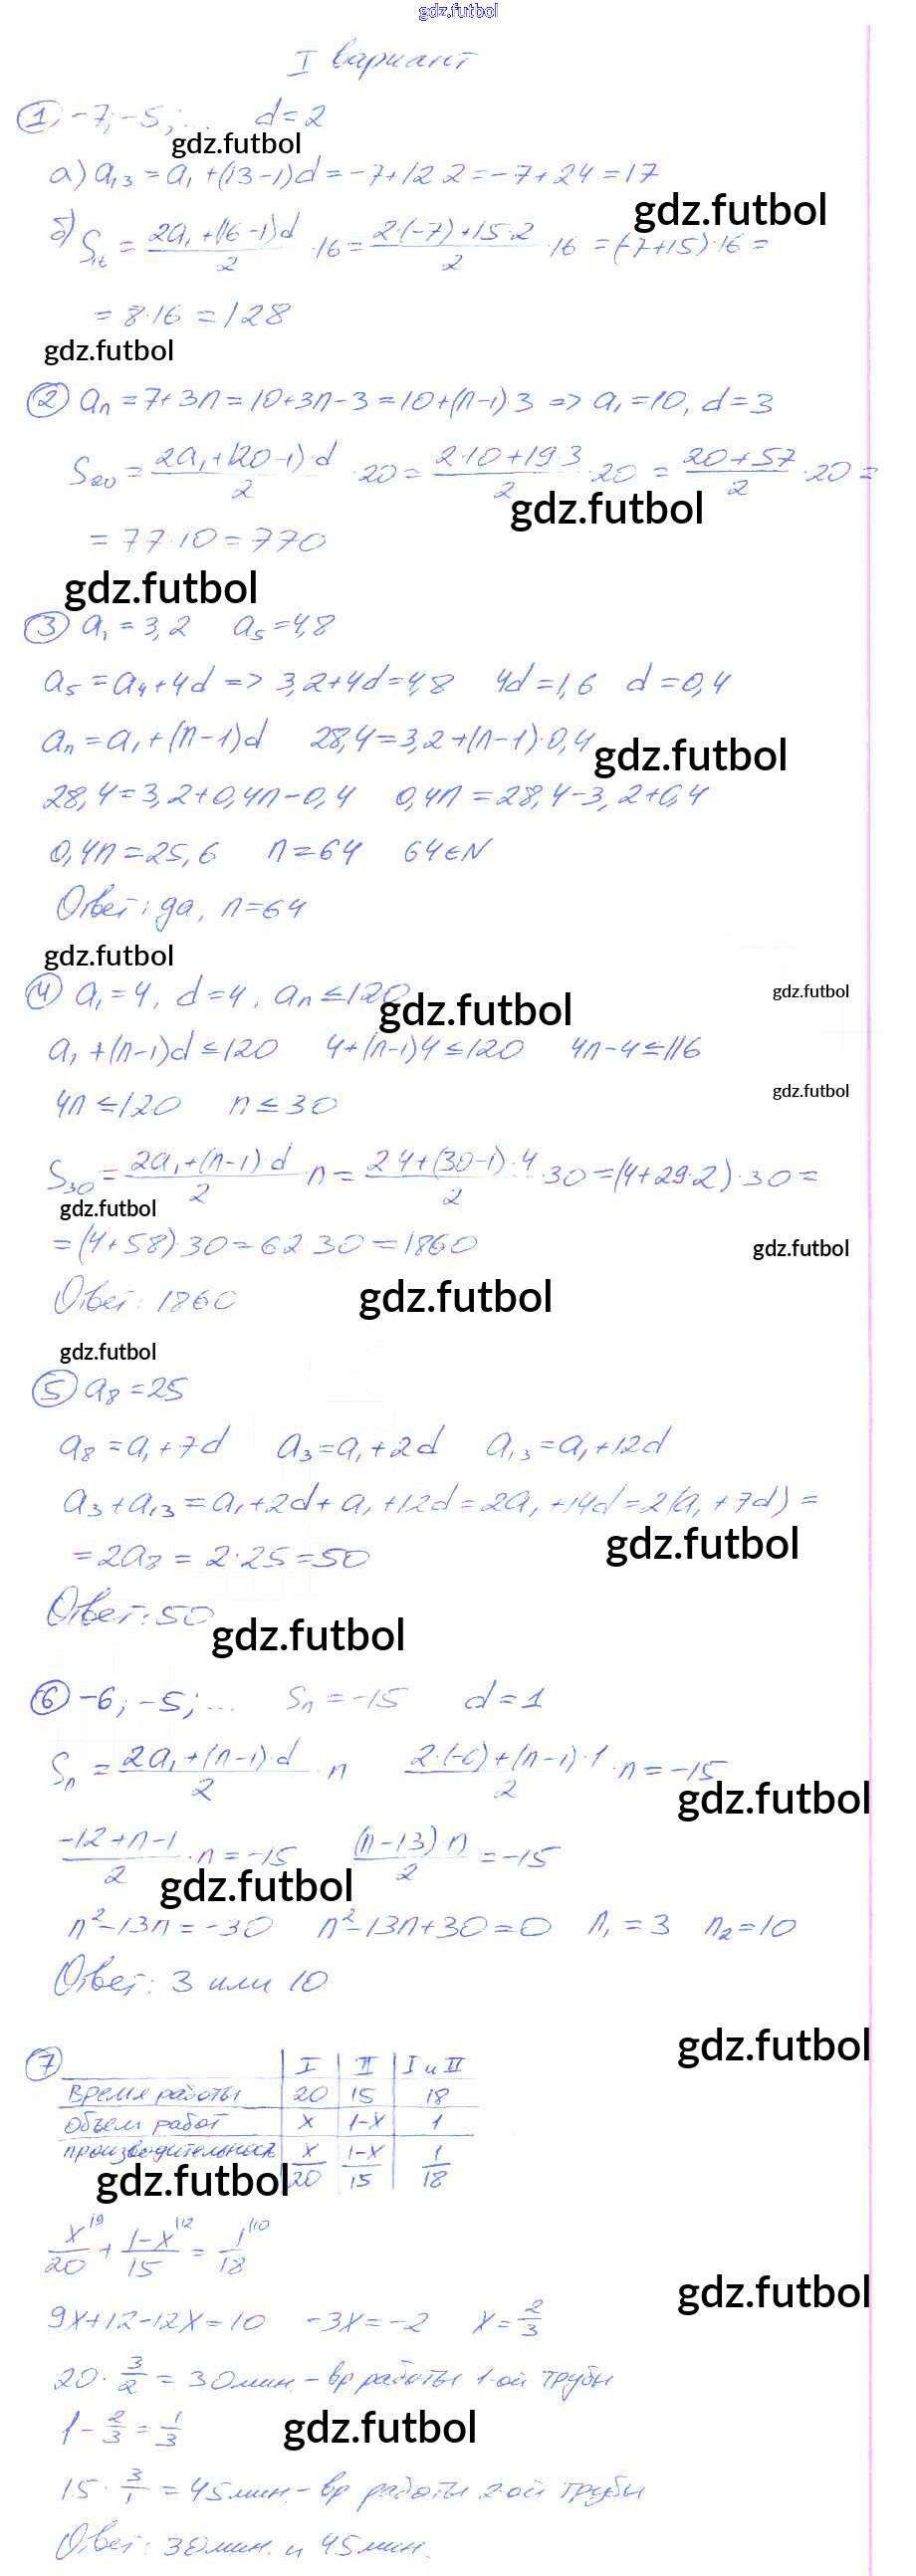 gdz.futbol
I вариант
① -7; -5; ... d=2
gdz.futbol
а) a₁₃ = a₁ + (13-1)d = -7+12·2 = -7+24 = 17
gdz.futbol
б) S₁₆ = (2a₁+(16-1)d)/2 ·16 = (2·(-7)+15·2)/2 ·16 = (-7+15)·16 =
= 8·16 = 128
gdz.futbol
② aₙ = 7+3n = 10+3n-3 = 10+(n-1)3 => a₁=10, d=3
S₂₀ = (2a₁+(20-1)·d)/2 ·20 = (2·10+19·3)/2 ·20 = (20+57)/2 ·20 =
gdz.futbol
= 77·10 = 770
gdz.futbol
③ a₁ = 3,2 a₅ = 4,8
a₅ = a₄+4d => 3,2+4d=4,8 4d=1,6 d=0,4
aₙ = a₁+(n-1)d 28,4=3,2+(n-1)·0,4
gdz.futbol
28,4=3,2+0,4n-0,4 0,4n=28,4-3,2+0,4
0,4n=25,6 n=64 64∈N
Ответ: да, n=64
gdz.futbol
④ a₁=4, d=4, aₙ≤120
gdz.futbol
gdz.futbol
a₁+(n-1)d≤120 4+(n-1)4≤120 4n-4≤116
gdz.futbol
4n≤120 n≤30
S₃₀ = (2a₁+(n-1)d)/2 ·n = (2·4+(30-1)·4)/2 ·30 = (4+29·2)·30 =
gdz.futbol
= (4+58)·30 = 62·30 = 1860
gdz.futbol
Ответ: 1860
gdz.futbol
gdz.futbol
⑤ a₈ = 25
a₈ = a₁+7d a₃=a₁+2d a₁₃=a₁+12d
a₃+a₁₃ = a₁+2d+a₁+12d = 2a₁+14d = 2(a₁+7d) =
gdz.futbol
= 2a₈ = 2·25 = 50
Ответ: 50
gdz.futbol
⑥ -6; -5; ... Sₙ = -15 d=1
Sₙ = (2a₁+(n-1)·d)/2 ·n (2·(-6)+(n-1)·1)/2 ·n = -15
gdz.futbol
(-12+n-1)/2 ·n = -15 ((n-13)·n)/2 = -15
gdz.futbol
n²-13n=-30 n²-13n+30=0 n₁=3 n₂=10
Ответ: 3 или 10
gdz.futbol
⑦ I II I и II
время работы 20 15 18
объем работ x 1-x 1
производительность x/20 (1-x)/15 1/18
gdz.futbol
x|9/20 + (1-x)|12/15 = 1|10/18
gdz.futbol
9x+12-12x=10 -3x=-2 x=2/3
20·3/2 = 30мин. - вр работы 1-ой трубы
1-2/3=1/3
gdz.futbol
15·3/1 = 45мин. - вр работы 2-ой трубы
Ответ: 30мин. и 45мин.